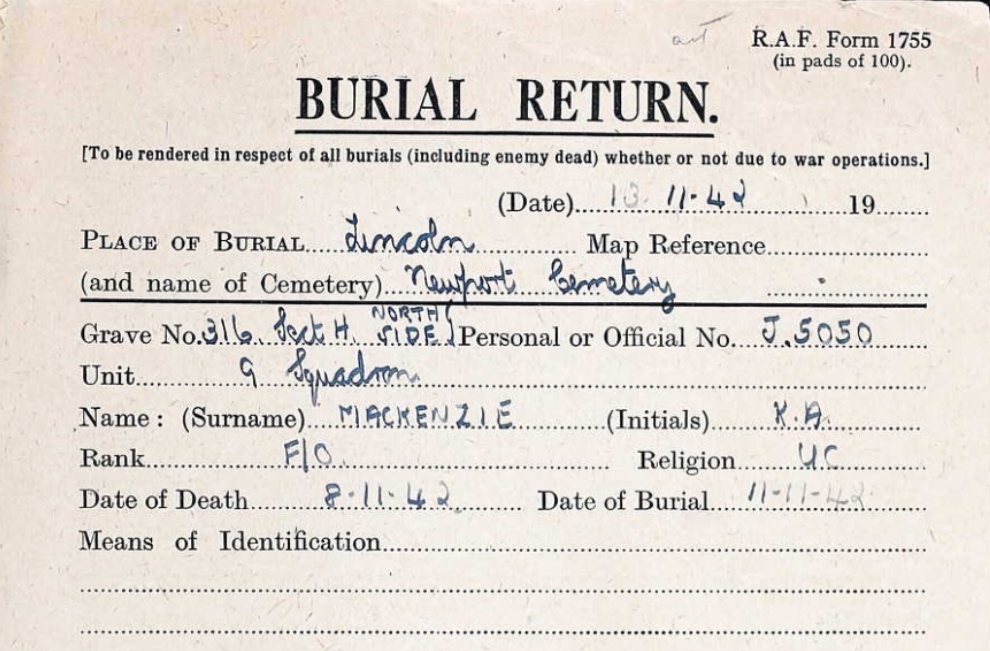 R.A.F. Form 1755
(in pads of 100).
BURIAL RETURN.
[To be rendered in respect of all burials (including enemy dead) whether or not due to war operations.]
(Date) 13. 11-42 19
PLACE OF BURIAL Lincoln Map Reference
(and name of Cemetery) Newport Cemetery
Grave No. 316. Sect H. NORTH SIDE Personal or Official No. J.5050
Unit 9 Squadron
Name: (Surname) MACKENZIE (Initials) K.A.
Rank F/O. Religion UC
Date of Death 8-11-42 Date of Burial 11-11-42
Means of Identification